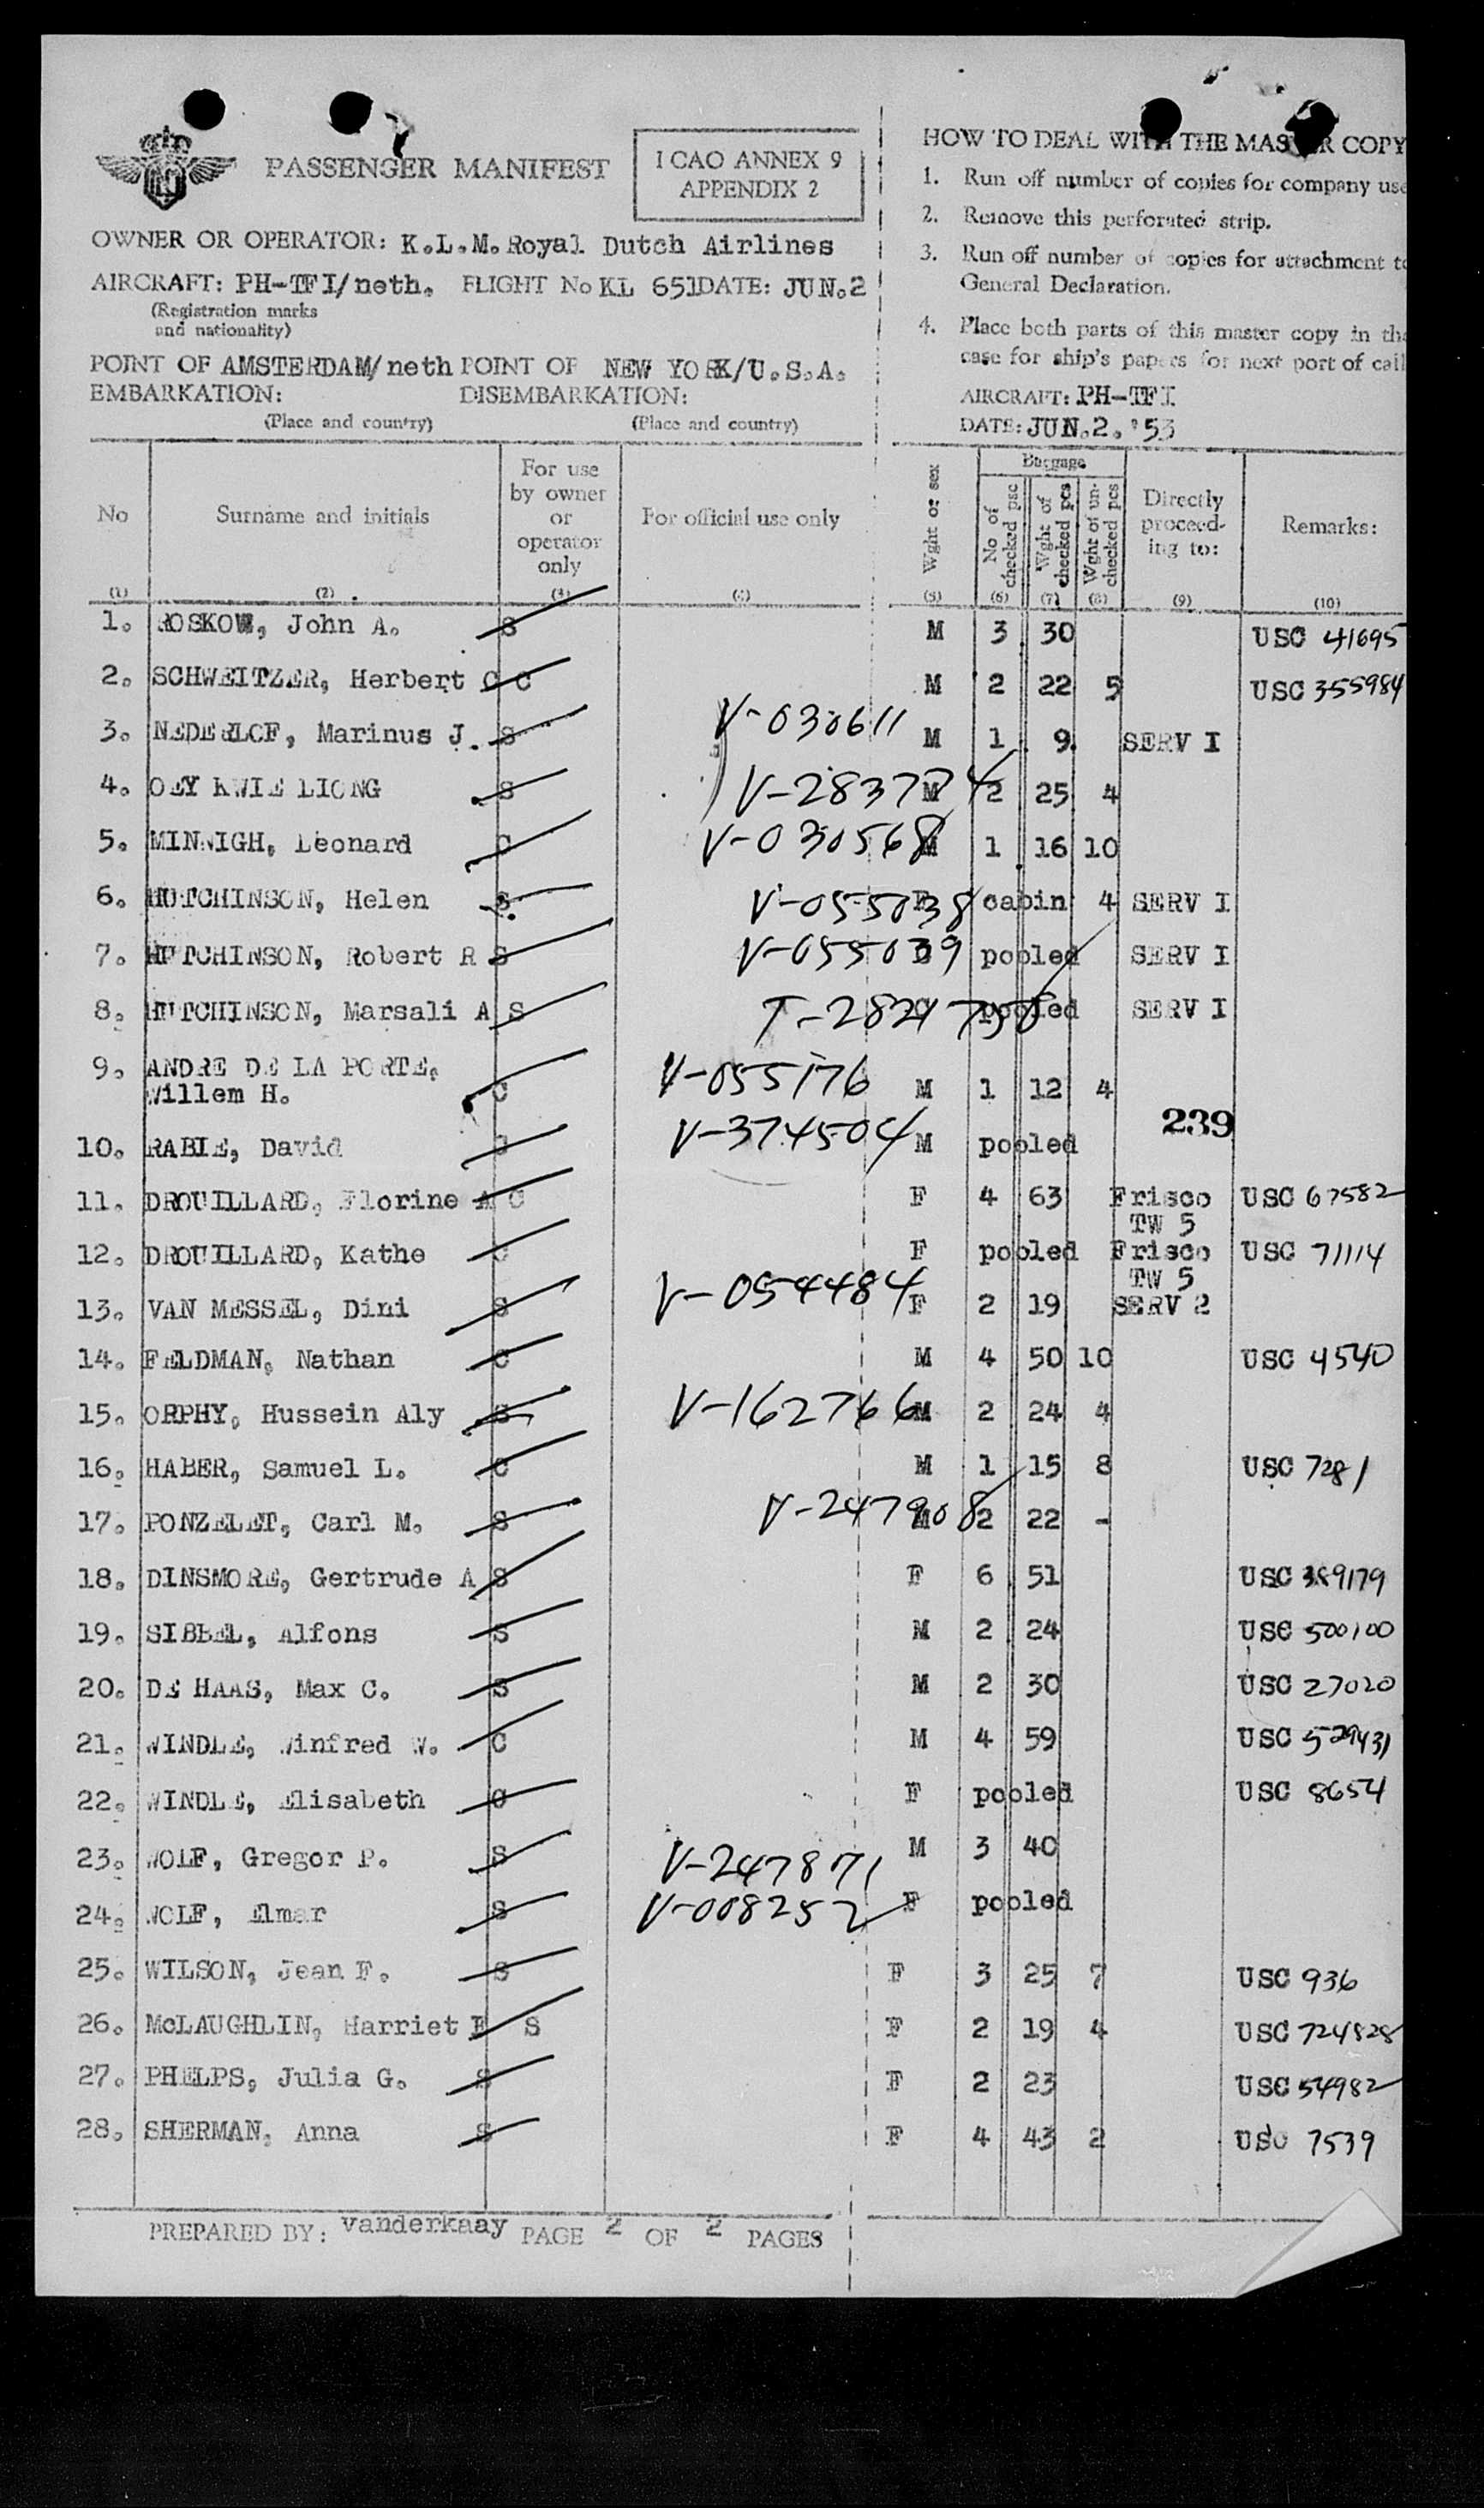 PASSENGER MANIFEST
ICAO ANNEX 9
APPENDIX 2
OWNER OR OPERATOR: K.L.M. Royal Dutch Airlines
AIRCRAFT: PH-TFI/neth. FLIGHT No KL 651 DATE: JUN.2
(Registration marks
and nationality)
POINT OF AMSTERDAM/neth POINT OF NEW YORK/U.S.A.
EMBARKATION: DISEMBARKATION:
(Place and country) (Place and country)
HOW TO DEAL WITH THE MASTER COPY
1. Run off number of copies for company use
2. Remove this perforated strip.
3. Run off number of copies for attachment to
General Declaration.
4. Place both parts of this master copy in the
case for ship's papers for next port of call
AIRCRAFT: PH-TFI
DATE: JUN.2.'53
No Surname and initials For use by owner or operator only For official use only Wght or sex Baggage No of checked psc Wght of checked pcs Wght of un-checked pcs Directly proceed-ing to: Remarks:
(1) (2) (3) (4) (5) (6) (7) (8) (9) (10)
1. ROSKOW, John A. S M 3 30 USC 41695
2. SCHWEITZER, Herbert C C M 2 22 5 USC 355984
3. NEDERLOF, Marinus J. S V-030611 M 1 9 SERV I
4. OEY KWIE LIONG S V-283774 M 2 25 4
5. MINNIGH, Leonard C V-030568 M 1 16 10
6. HUTCHINSON, Helen S V-055038 F cabin 4 SERV I
7. HUTCHINSON, Robert R S V-055039 pooled SERV I
8. HUTCHINSON, Marsali A S pooled SERV I
9. ANDRE DE LA PORTE,
Willem H. C V-055176 M 1 12 4
239
10. RABIE, David V-374504 M pooled
11. DROUILLARD, Florine A C F 4 63 Frisco USC 67582
TW 5
12. DROUILLARD, Kathe C F pooled Frisco USC 71114
TW 5
13. VAN MESSEL, Dini S V-054484 F 2 19 SERV 2
14. FELDMAN, Nathan C M 4 50 10 USC 4540
15. ORPHY, Hussein Aly S V-162766 M 2 24 4
16. HABER, Samuel L. C M 1 15 8 USC 7281
17. PONZELET, Carl M. S V-247908 M 2 22 -
18. DINSMORE, Gertrude A S F 6 51 USC 389179
19. SIBBEL, Alfons S M 2 24 USC 500100
20. DE HAAS, Max C. S M 2 30 USC 27020
21. WINDLE, Winfred W. C M 4 59 USC 529431
22. WINDLE, Elisabeth C F pooled USC 8654
23. WOLF, Gregor P. S V-247871 M 3 40
24. WOLF, Elmar S V-008252 F pooled
25. WILSON, Jean F. S F 3 25 7 USC 936
26. McLAUGHLIN, Harriet E S F 2 19 4 USC 724828
27. PHELPS, Julia G. S F 2 23 USC 54982
28. SHERMAN, Anna S F 4 43 2 USC 7539
PREPARED BY: vanderkaay PAGE 2 OF 2 PAGES